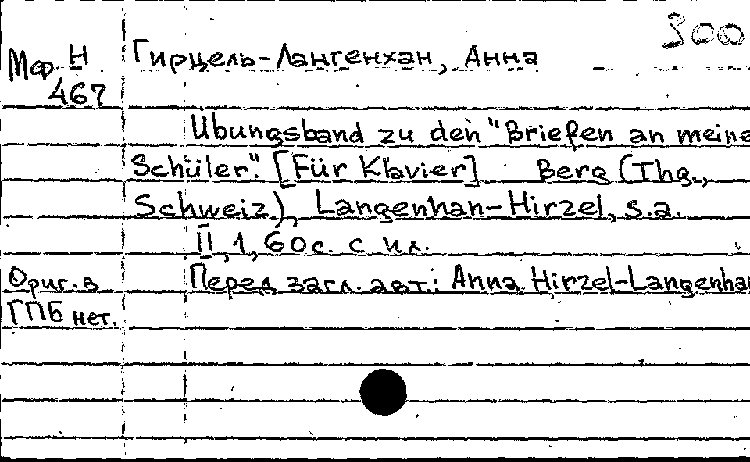 300
Мф Н Гирцель-Лангенхан, Анна
467
Übungsband zu den "Briefen an meine
Schüler". [Für Klavier] Berg (Thg.,
Schweiz), Langenhan-Hirzel, s.a.
II, 1, 60 с. с ил.
Ориг. в Перед загл. авт.: Anna Hirzel-Langenhan
ГПБ нет.